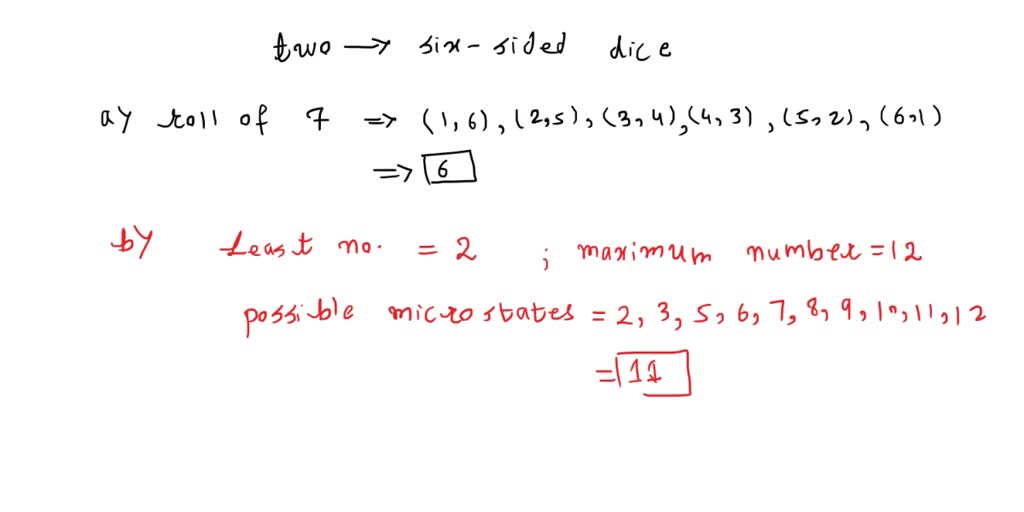 two → six-sided dice
a) roll of 7 => (1,6), (2,5), (3,4), (4,3), (5,2), (6,1)
=> 6
b) Least no. = 2 ; maximum number = 12
possible microstates = 2, 3, 5, 6, 7, 8, 9, 10, 11, 12
= 11